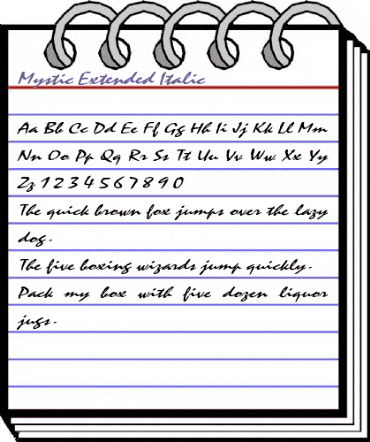 Mystic Extended Italic
Aa Bb Cc Dd Ee Ff Gg Hh Ii Jj Kk Ll Mm
Nn Oo Pp Qq Rr Ss Tt Uu Vv Ww Xx Yy
Zz 1 2 3 4 5 6 7 8 9 0
The quick brown fox jumps over the lazy
dog.
The five boxing wizards jump quickly.
Pack my box with five dozen liquor
jugs.